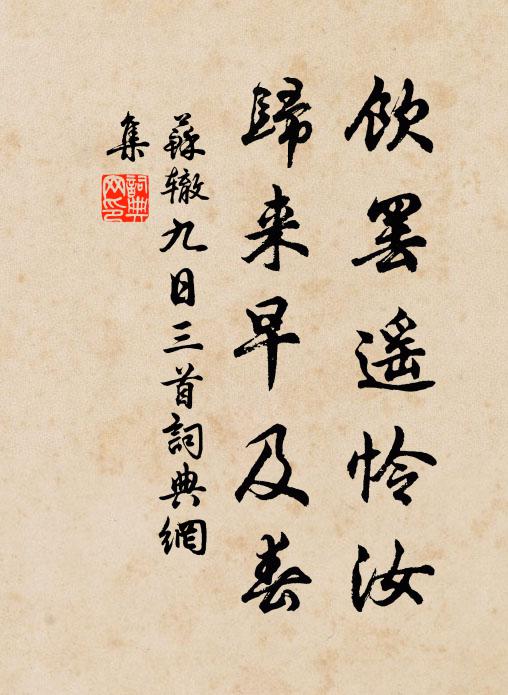 飲罷遥怜汝
歸来早及春
蘇辙九日三首詞典網
集
詞典
网印